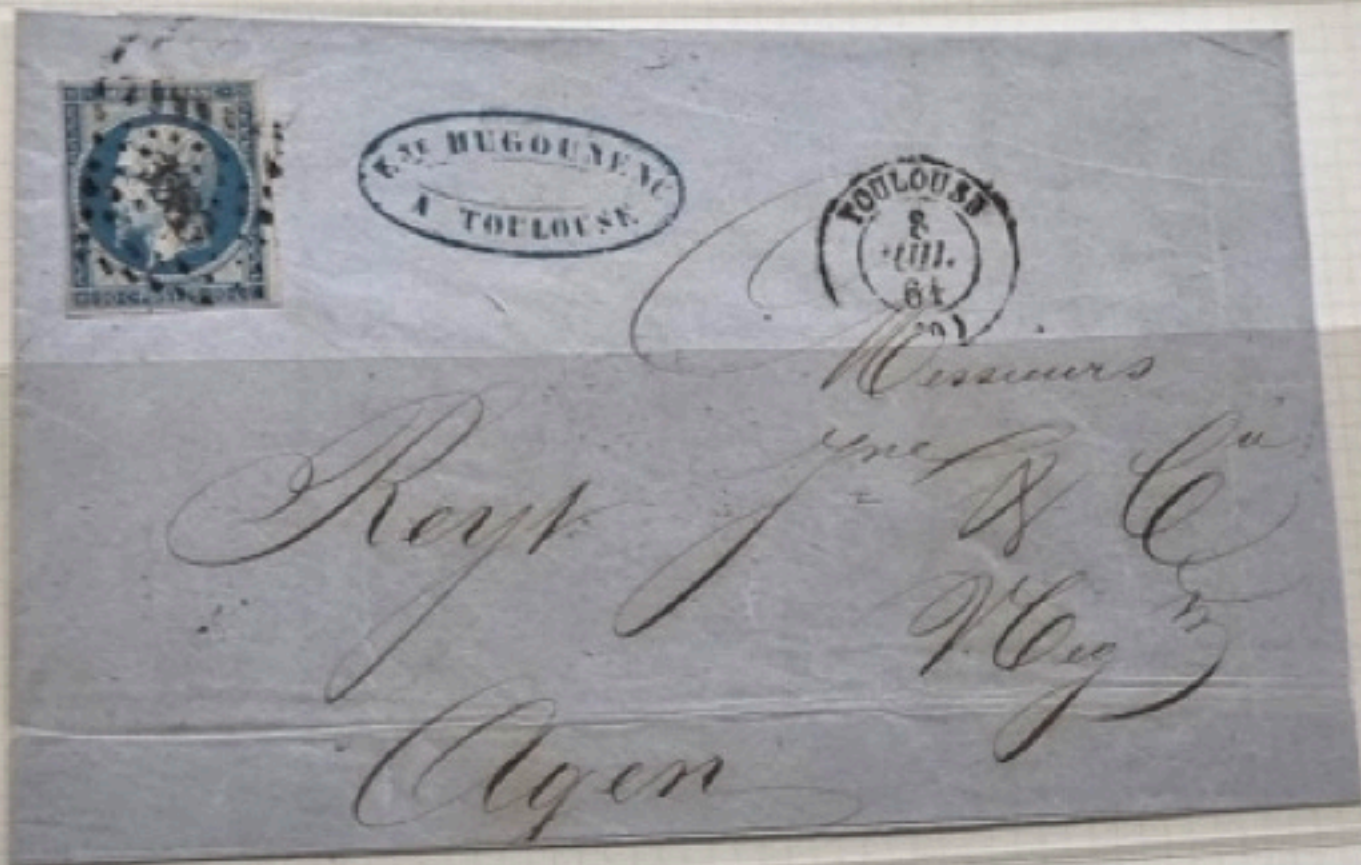 HUGOUNENC
A TOULOUSE
TOULOUSE
8
JUIL.
61
Messieurs
Reyt Jne & Cie
Agen